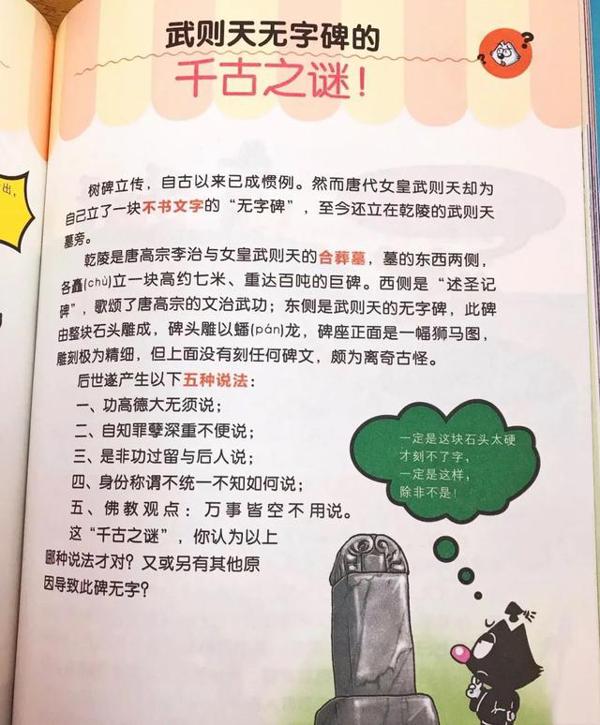 武则天无字碑的
千古之谜！
树碑立传，自古以来已成惯例。然而唐代女皇武则天却为
自己立了一块不书文字的“无字碑”，至今还立在乾陵的武则天
墓旁。
乾陵是唐高宗李治与女皇武则天的合葬墓，墓的东西两侧，
各矗(chù)立一块高约七米、重达百吨的巨碑。西侧是“述圣记
碑”，歌颂了唐高宗的文治武功；东侧是武则天的无字碑，此碑
由整块石头雕成，碑头雕以蟠(pán)龙，碑座正面是一幅狮马图，
雕刻极为精细，但上面没有刻任何碑文，颇为离奇古怪。
后世遂产生以下五种说法：
一、功高德大无须说；
二、自知罪孽深重不便说；
三、是非功过留与后人说；
四、身份称谓不统一不知如何说；
五、佛教观点：万事皆空不用说。
这“千古之谜”，你认为以上
哪种说法才对？又或另有其他原
因导致此碑无字？
一定是这块石头太硬
才刻不了字，
一定是这样，
除非不是！